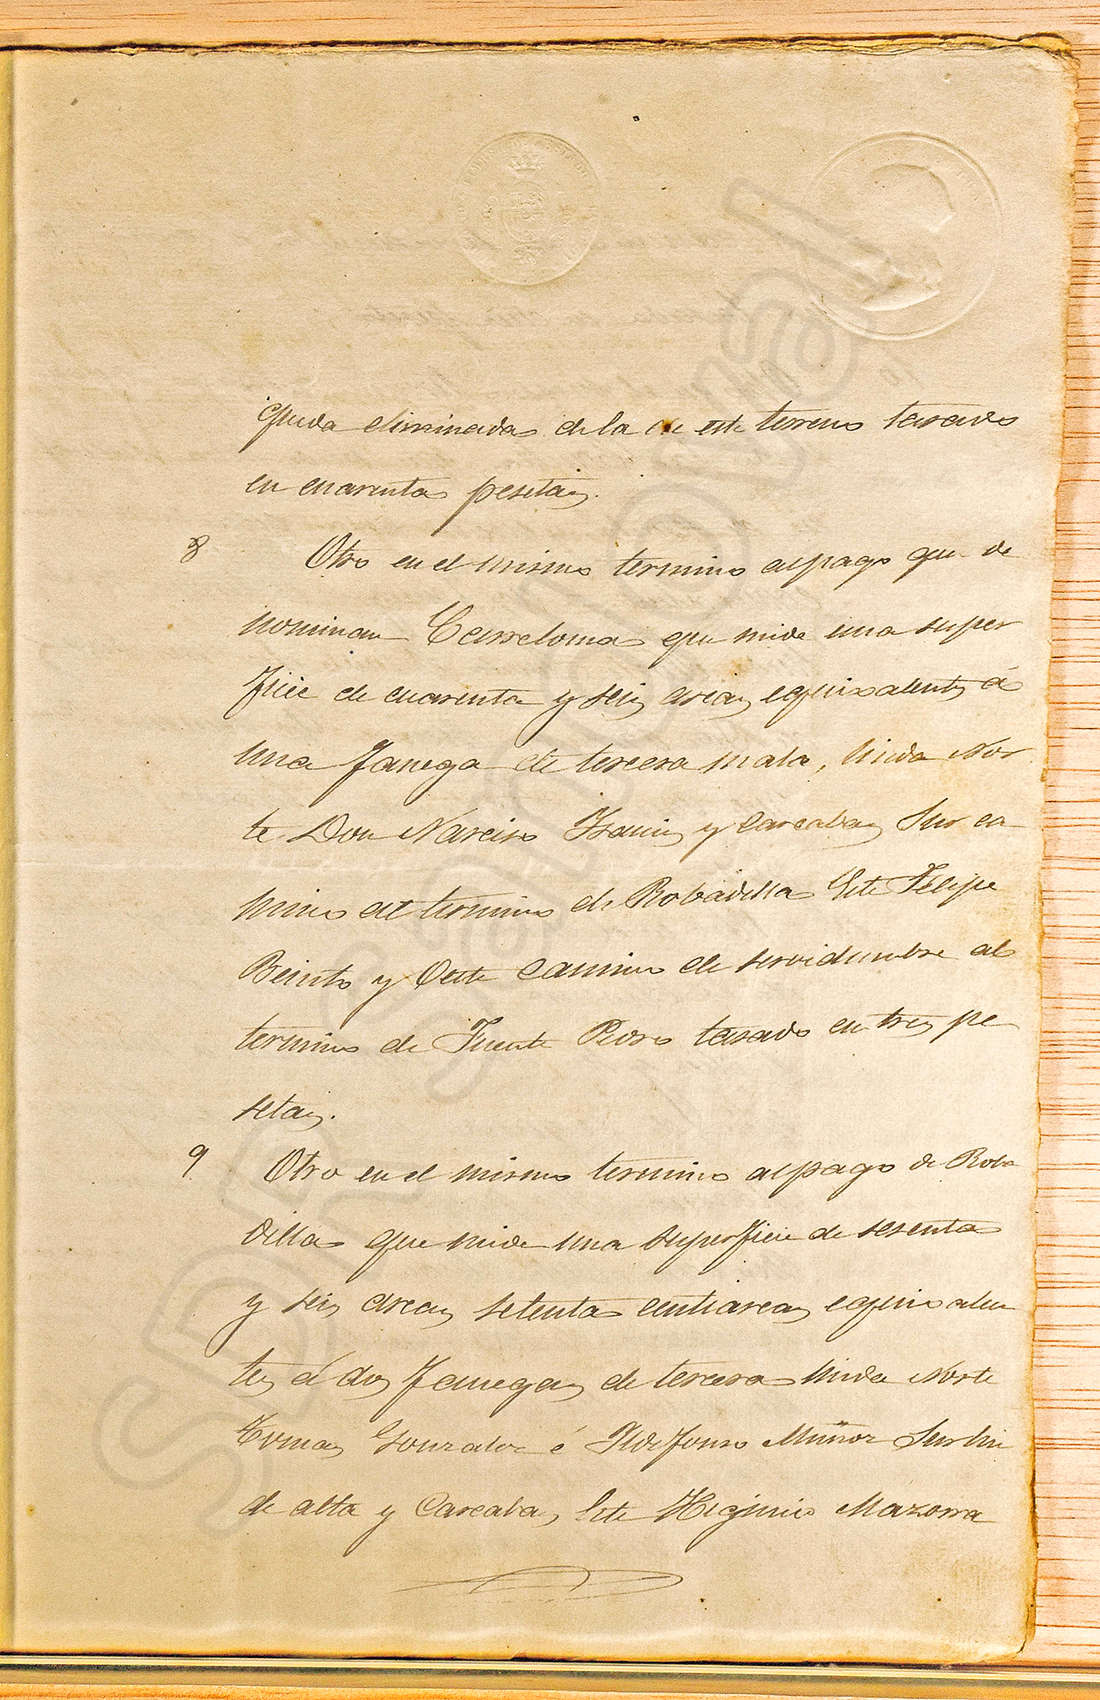 queda eliminada de la de este terreno tasado
en cuarenta pesetas.
8 Otro en el mismo termino al pago que de
nominan Carreloma que mide una super
ficie de cuarenta y seis areas equivalentes á
una fanega de tercera mala, linda Nor
te Don Narciso y Carcabas Sur ca
mino al termino de Robadilla Este Felipe
Benito y Oeste Camino de servidumbre al
termino de Fuente Pedro tasado en tres pe
setas.
9 Otro en el mismo termino al pago de Roba
dilla que mide una superficie de sesenta
y seis areas setenta centiareas equivalen
tes á dos fanegas de tercera linda Norte
Tomas Gonzalez é Ildefonso Muñoz Sur lin
de alta y Carcaba, Este Higinio Mazorra